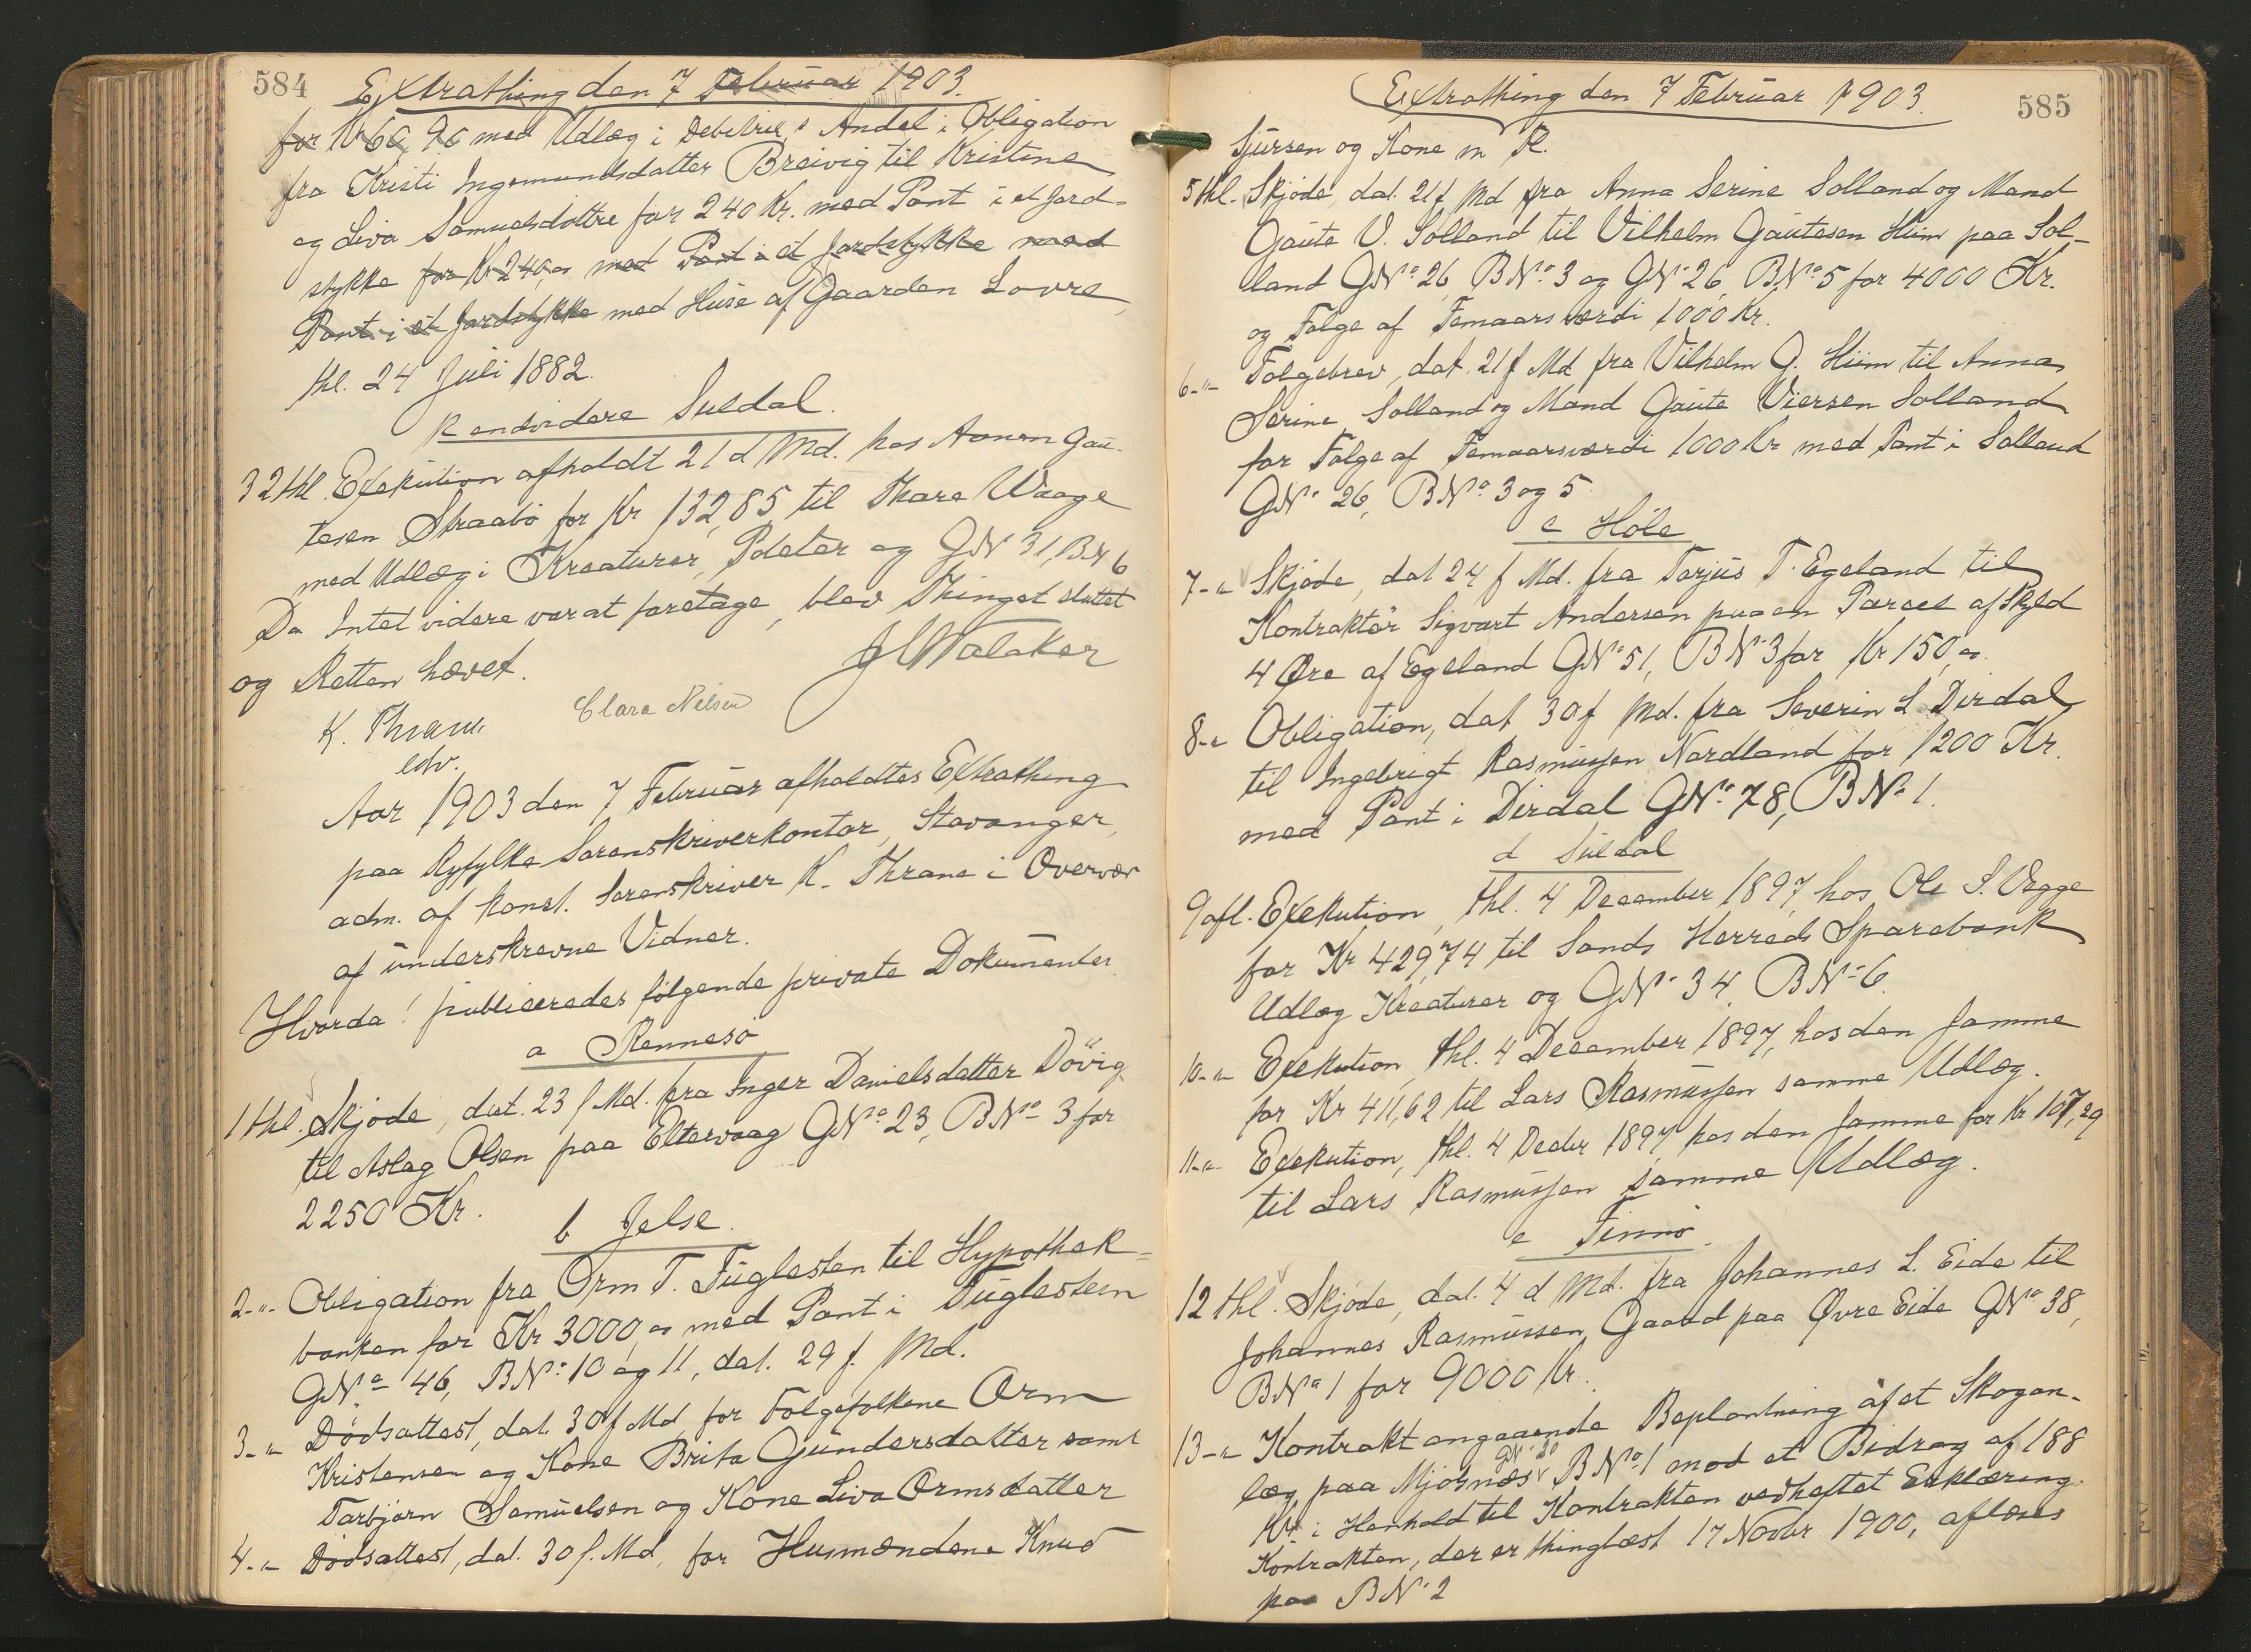 584
Extrathing den 7 Februar 1903.
for Kr 60,90 med Udlæg i Debitrix's Andel i Obligation
fra Kristi Ingemundsdatter Breivig til Kristine
og Siva Samuelsdøttre for 240 Kr. med Pant i et Jord-
stykke for Kr 240,00 med Pant i et Jordstykke med
Pant i et Jordstykke med Huse af Gaarden Lovre,
thl. 24 Juli 1882.
k endvidere Suldal.
32 thl. Exekution afholdt 21 d Md. hos Aanen Gau-
tesen Straabø for Kr 132,85 til Thore Waage
med Udlæg i Kreaturer, Poteter og GN 31, BN 6
Da Intet videre var at foretage, blev Thinget sluttet
og Retten hævet.
K. Thrane
edv.
Clara Nilsen
Aar 1903 den 7 Februar afholdtes Extrathing
paa Ryfylke Sorenskriverkontor, Stavanger,
adm. af konst. Sorenskriver K. Thrane i Overvær
af underskrevne Vidner.
Hvorda! publiceredes følgende private Dokumenter.
a Rennesø
1 thl. Skjøde, dat. 23 f Md. fra Inger Danielsdatter Døvig
til Aslag Olsen paa Eltervaag GNo 23, BNo 3 for
2250 Kr.
b Jelse.
2-"- Obligation fra Orm T. Fuglesten til Hypothek-
banken for Kr 3000,00 med Pant i Fuglestein
GNo 46, BNo 10 og 11, dat. 29 f. Md.
3-"- Dødsattest, dat. 30 f Md for Folgefolkene Orm
Kristensen og Kone Brita Gundersdatter samt
Torbjørn Samuelsen og Kone Siva Ormsdatter
4-"- Dødsattest, dat. 30 f. Md, for Husmændene Knud
Extrathing den 7 Februar 1903.
585
Sjursen og Kone m Fl.
5 thl. Skjøde, dat. 21 f Md fra Anna Serine Solland og Mand
Gaute V. Solland til Vilhelm Gautesen Hiim paa Sol-
land GNo 26, BNo 3 og GNo 26, BNo 5 for 4000 Kr.
og Følge af Femaarsværdi 1000 Kr.
6-"- Følgebrev, dat. 21 f Md fra Vilhelm G. Hiim til Anna
Serine Solland og Mand Gaute Viersen Solland
for Følge af Femaarsværdi 1000 Kr med Pant i Solland
GNo 26, BNo 3 og 5
c Høle
7-"- Skjøde, dat 24 f Md. fra Torjus T. Egeland til
Kontraktør Sigvart Andersen paa en Parcel af Skyld
4 Øre af Egeland GNo 51, BNo 3 for Kr 150,00.
8-"- Obligation, dat 30 f Md. fra Severin L. Dirdal
til Ingebrigt Rasmussen Nordland for 1200 Kr.
med Pant i Dirdal GNo 78, BNo 1.
d Suldal
9 afl. Exekution, thl. 4 December 1897, hos Ole S. Vegge
for Kr 429,74 til Sands Herreds Sparebank
Udlæg Kreaturer og GNo 34, BNo 6.
10-"- Exekution, thl. 4 December 1897, hos den Samme
for Kr 411,62 til Lars Rasmussen samme Udlæg.
11-"- Exekution, thl. 4 Decbr 1897 hos den Samme for Kr 107,29
til Lars Rasmussen samme Udlæg.
e Finnø.
12 thl. Skjøde, dat. 4 d Md. fra Johannes L. Eide til
Johannes Rasmussen Gaard paa Øvre Eide GNo 38,
BNo 1 for 9000 Kr.
13-"- Kontrakt angaaende Beplantning af et Skogan-
GNo 20
læg paa Mjosnæs BNo 1 mod et Bidrag af 188
Kr. i Henhold til Kontrakten vedheftet Erklæring.
Kontrakten, der er thinglæst 17 Novbr 1900, aflæses
paa BNo 2